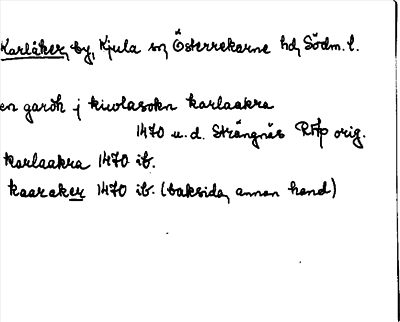 Karlåker, by, Kjula sn, Österrekarne hd, Södm. l.
en gardh j kiwlasokn karlaakra
1470 u.d. Strängnäs RAp orig.
karlaakra 1470 ib.
kaaraker 1470 ib. (baksida, annan hand)